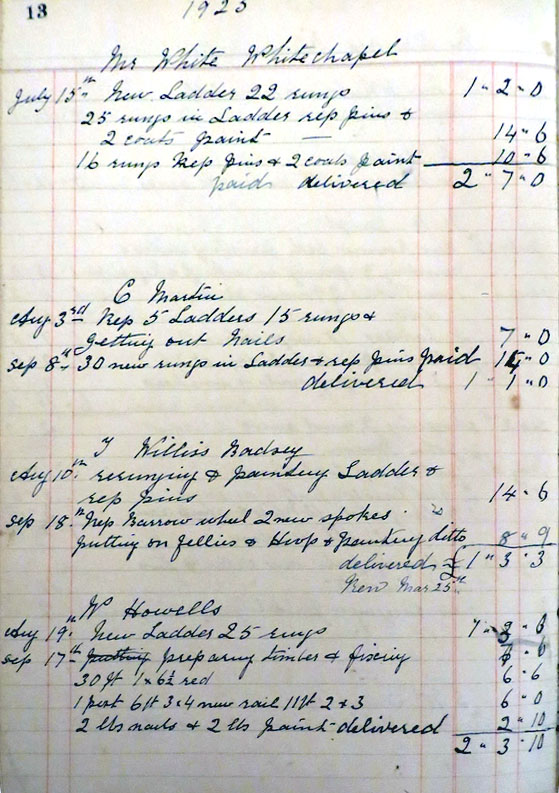 13
1923
Mr White Whitechapel
July 15th New Ladder 22 rungs 1 " 2 " 0
25 rungs in Ladder rep pins &
2 coats paint — 14 " 6
16 rungs Rep pins & 2 coats paint 10 " 6
paid delivered 2 " 7 " 0
C Martin
Aug 3rd Rep 5 Ladders 15 rungs &
getting out Nails 7 " 0
Sep 8th 30 new rungs in Ladder & rep pins paid 14 " 0
delivered 1 " 1 " 0
Williss Badsey
Aug 10th rerunging & painting Ladder &
rep pins 14 " 6
Sep 18th Rep Barrow wheel 2 new spokes
putting on fellies & Hoop & painting ditto 8 " 9
delivered £1 " 3 " 3
Mar 25th
W Howells
Aug 19th New Ladder 25 rungs
Sep 17th putting preparing timber & fixing
30 ft 1 x 6½ red 6 " 6
1 post 6ft 3 x 4 new rail 11ft 2 x 3 6 " 0
2 lbs nails & 2 lbs paint delivered 2 " 10
2 " 3 " 10